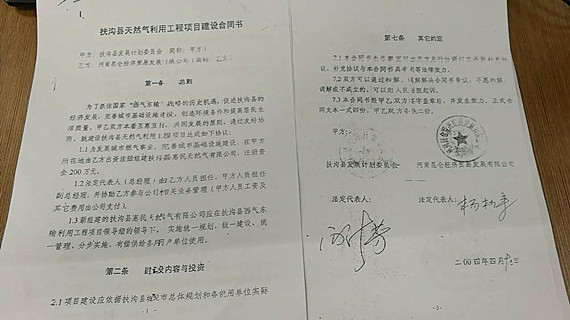 扶沟县天然气利用工程项目建设合同书
甲方:扶沟县发展计划委员会 简称:甲方)
乙方:河南昆仑经济贸易发展有限公司(简称:乙方)
第一条 总则
为了抓住国家"西气东输"战略的历史机遇,促进扶沟县的
经济发展,完善城市基础设施建设,创造环境条件和提高居民生
活质量,甲乙双方本着互惠互利、共同发展的原则,通过友好协
商,就建设扶沟县天然气利用工程项目达成如下协议:
1.1为发展城市燃气事业,完善城市基础设施建设,在甲方
所在地由乙方出资注册组建扶沟县惠民天然气有限公司,注册资
金200万元。
1.2法定代表人(总经理)由乙方人员担任,甲方人员担任
副总经理,并协助乙方参与公司相关业务管理(甲方人员工资及
其它费用由公司支付)。
1.3新组建的扶沟县惠民天然气有限公司应在扶沟县西气东
输利用工程项目领导组的领导下,实施统一规划、统一建设、统
一管理、分步实施、有偿供给各用户单位使用。
第二条 建设内容与投资
2.1项目建设应依据扶沟县城市总体规划和各使用单位实际
- 1 -
第七条 其它约定
充,补充协议与本合同具有同等法律效力。
7.2双方可以通过和解、调解解决合同争议,不愿和解、
调解或不成立的,可以向人民法院起诉。
7.3本合同经甲乙双方签字盖章后,并发生效力,正式合
同文本一式四份,甲乙双方各执二份。
甲方:
扶沟县发展计划委员会 河南昆仑经济贸易发展有限公司
法定代表人: 法定代表人:
二00四年四月